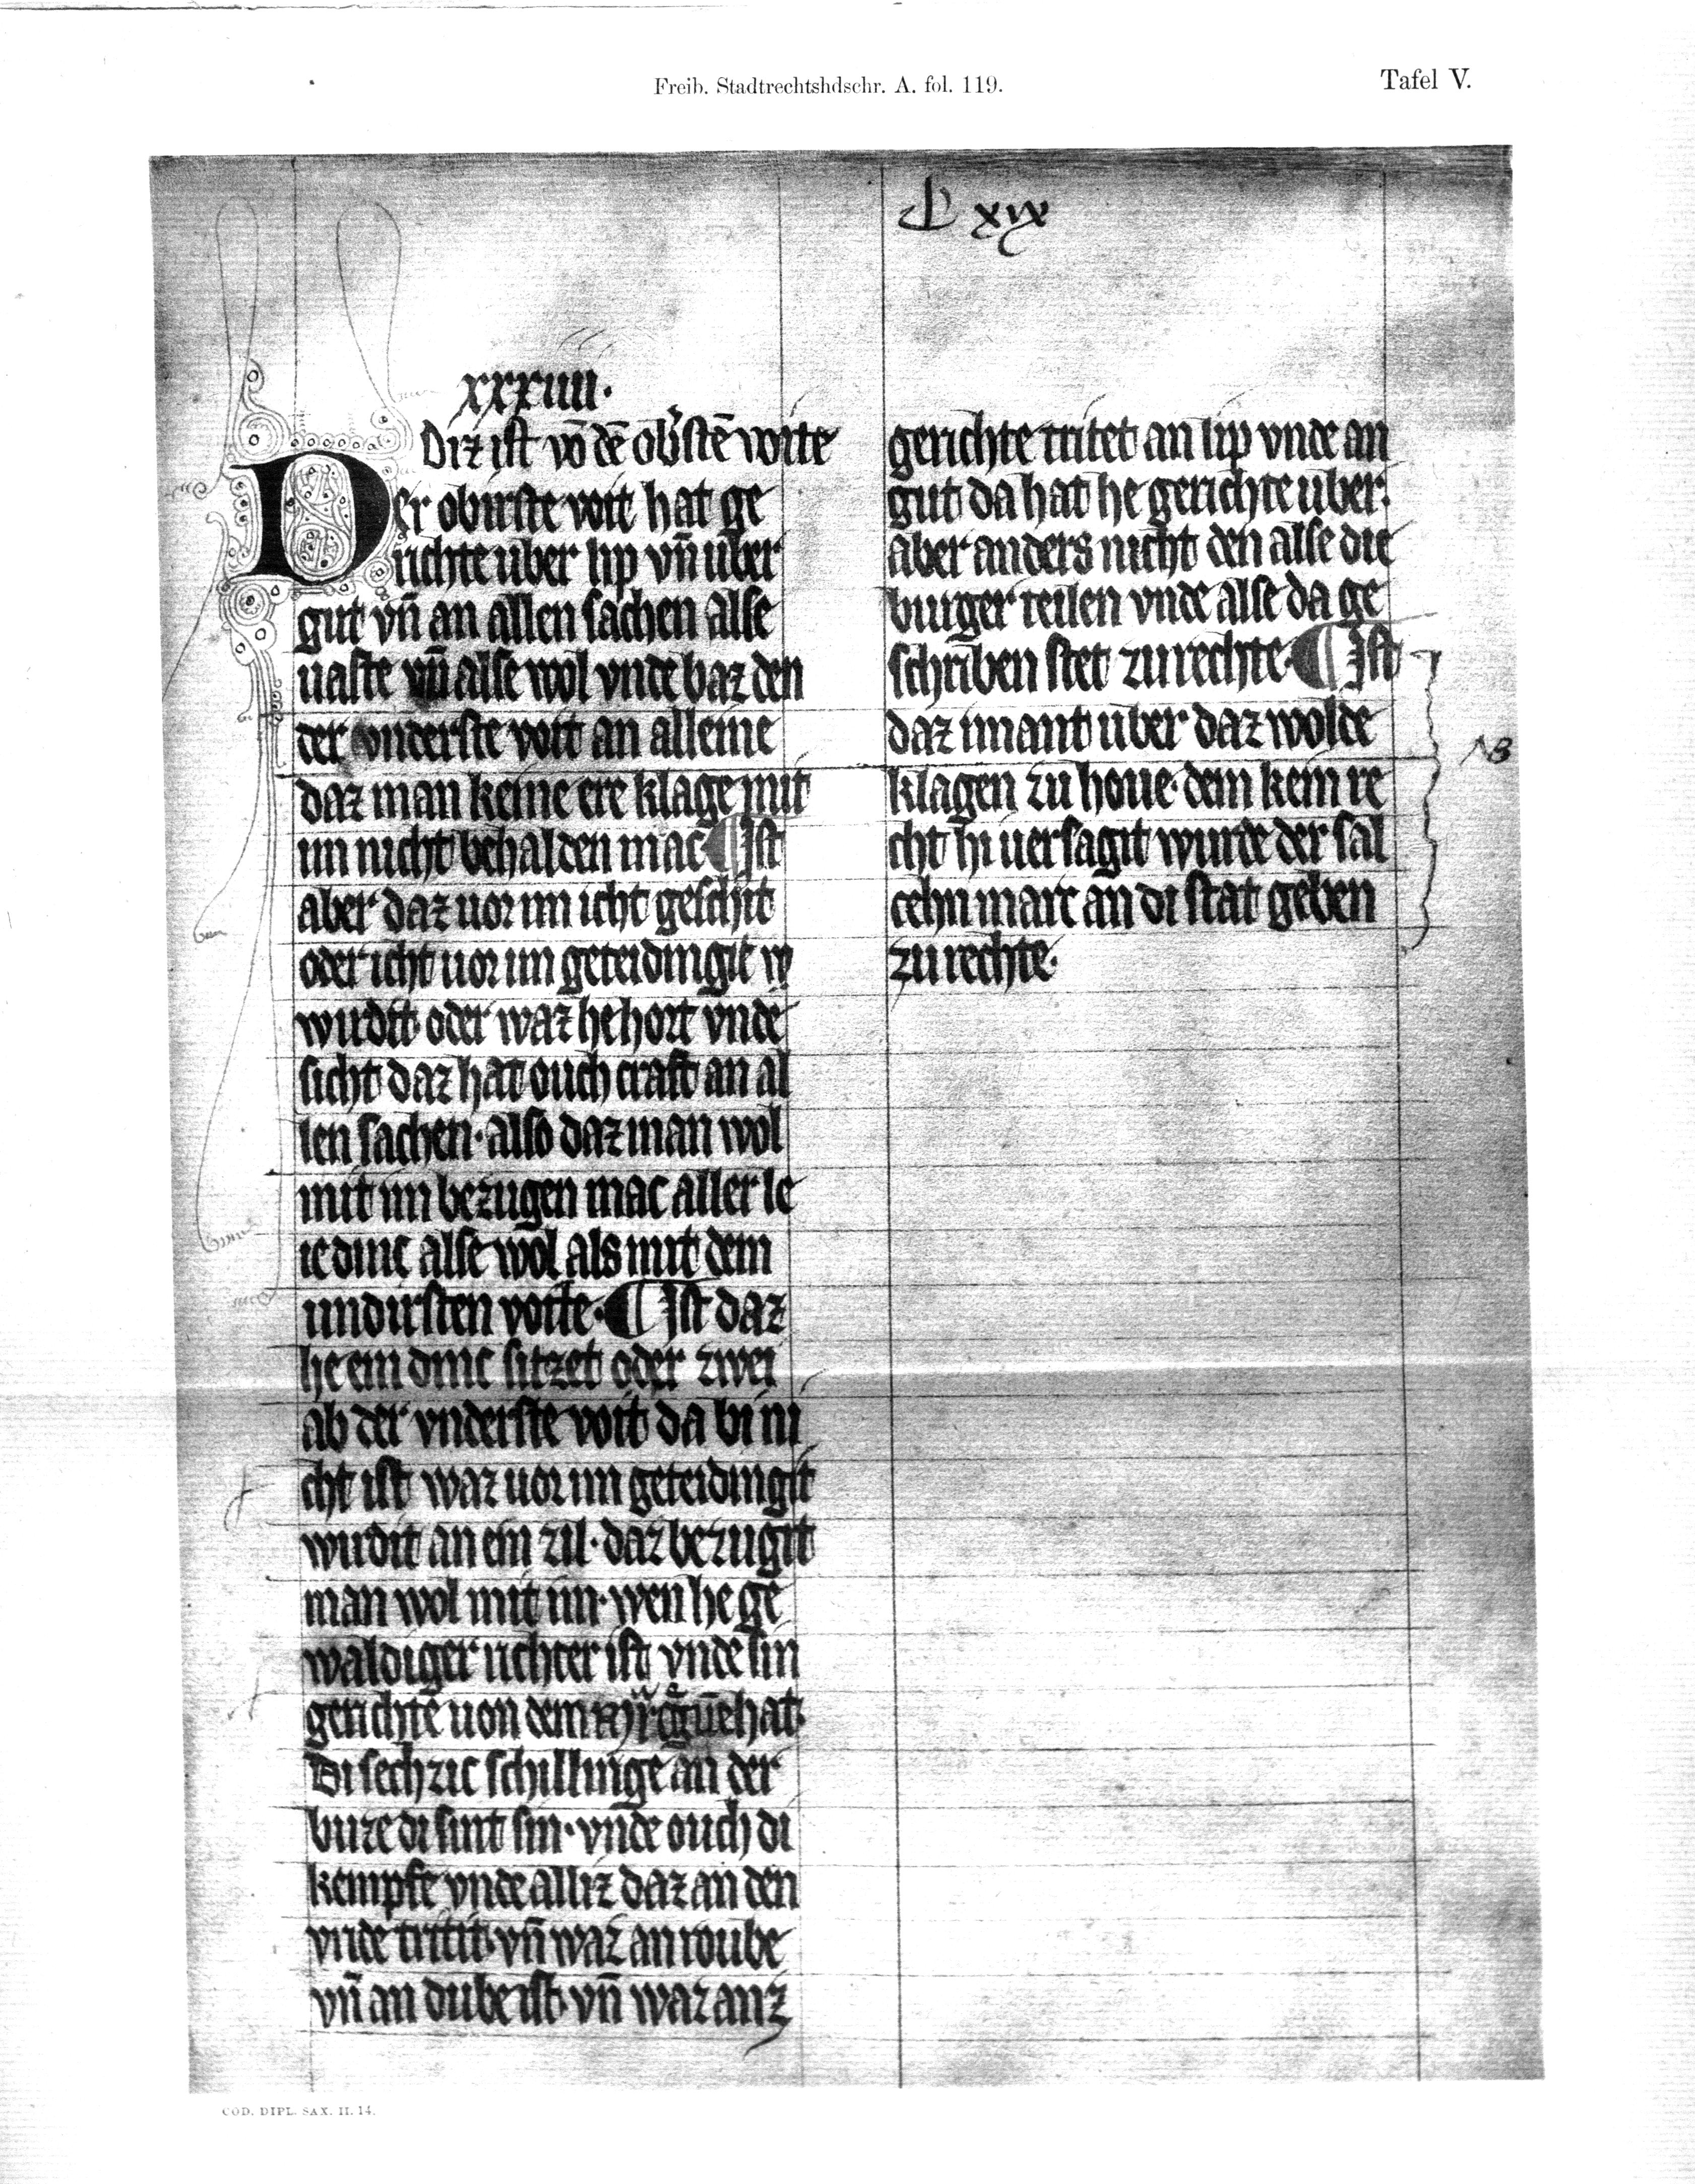 Freib. Stadtrechtshdschr. A. fol. 119.
Tafel V.
xxxiiii.
Diz ist vō dē obʼstē voite
Der obirste voit hat ge
richte uber lip vn̄ uber
gut vn̄ an allen sachen alse
uaste vn̄ alse wol vnde baz den
der vnderste voit an alleine
daz man keine ere klage mit
im nicht behalden mac ¶ Ist
aber daz uor im icht geschit
oder icht uor im geteidingit w
wirdit oder waz he hort vnde
sicht daz hat ouch craft an al
len sachen· also daz man wol
mit im bezugen mac aller le
ie dinc alse wol als mit dem
undirsten voite· ¶ Ist daz
he ein dinc sitzet oder zwei
ab der vnderste voit da bi ni
cht ist waz uor im geteidingit
wirdit an ein zil· daz bezugit
man wol mit im· wen he ge
waldiger richter ist vnde sin
gerichte uon dem hat·
Di sechzic schillinge an der
buze di sint sin· vnde ouch di
kempfe vnde alliz daz an den
vnde tritit· vn̄ waz an roube
vn̄ an dube ist· vn̄ waz an z
xix
gerichte tritet an lip vnde an
gut da hat he gerichte uber·
aber anders nicht den alse die
burger teilen vnde alse da ge
schriben stet zu rechte ¶ Ist
daz imant uber daz wolde
klagen zu houe· dem kein re
cht hi uersagit wurde der sal
cehn marc an di stat geben
zu rechte·
NB
COD. DIPL. SAX. II. 14.